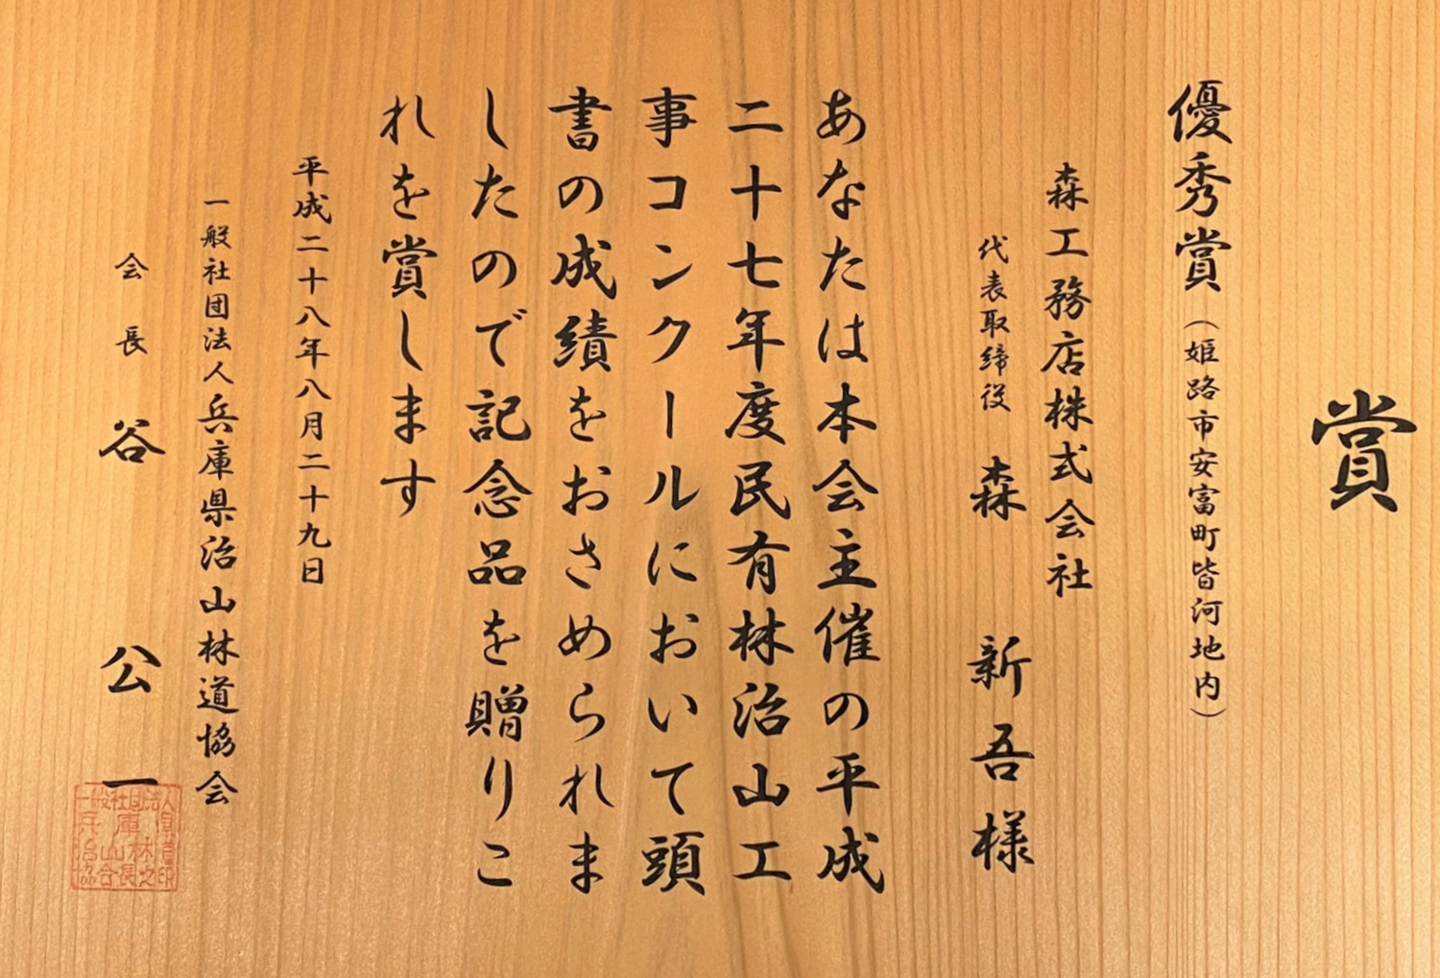 賞
優秀賞（姫路市安富町皆河地内）
森工務店株式会社
代表取締役 森 新吾様
あなたは本会主催の平成
二十七年度民有林治山工
事コンクールにおいて頭
書の成績をおさめられま
したので記念品を贈りこ
れを賞します
平成二十八年八月二十九日
一般社団法人兵庫県治山林道協会
会長 谷 公一